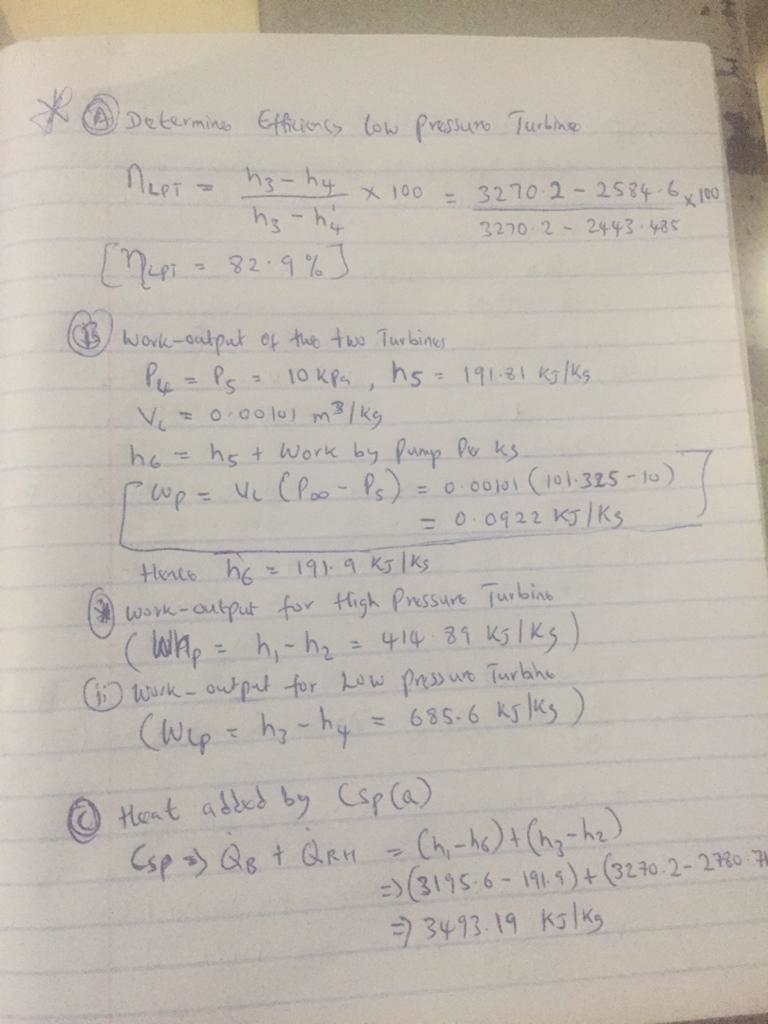 (A) Determine Efficiency low pressure Turbine
ηLPT = h3 - h4 / h3 - h4' × 100 = 3270.2 - 2584.6 / 3270.2 - 2443.485 × 100
[ηLPT = 82.9%]
(B) Work-output of the two Turbines
P4 = P5 = 10 kPa, h5 = 191.81 KJ/Kg
VL = 0.00101 m3/kg
h6 = h5 + Work by Pump Per Kg
Wp = VL (P∞ - P5) = 0.00101 (101.325-10)
= 0.0922 KJ/Kg
Hence h6 = 191.9 KJ/Kg
Work-output for High Pressure Turbine
(WHp = h1 - h2 = 414.89 KJ/Kg)
(ii) Work-output for Low pressure Turbine
(WLp = h3 - h4 = 685.6 KJ/Kg)
(C) Heat added by Csp(a)
Csp => Q̇B + Q̇RH = (h1-h6) + (h3-h2)
=> (3195.6 - 191.9) + (3270.2 - 2780.71
=> 3493.19 KJ/Kg